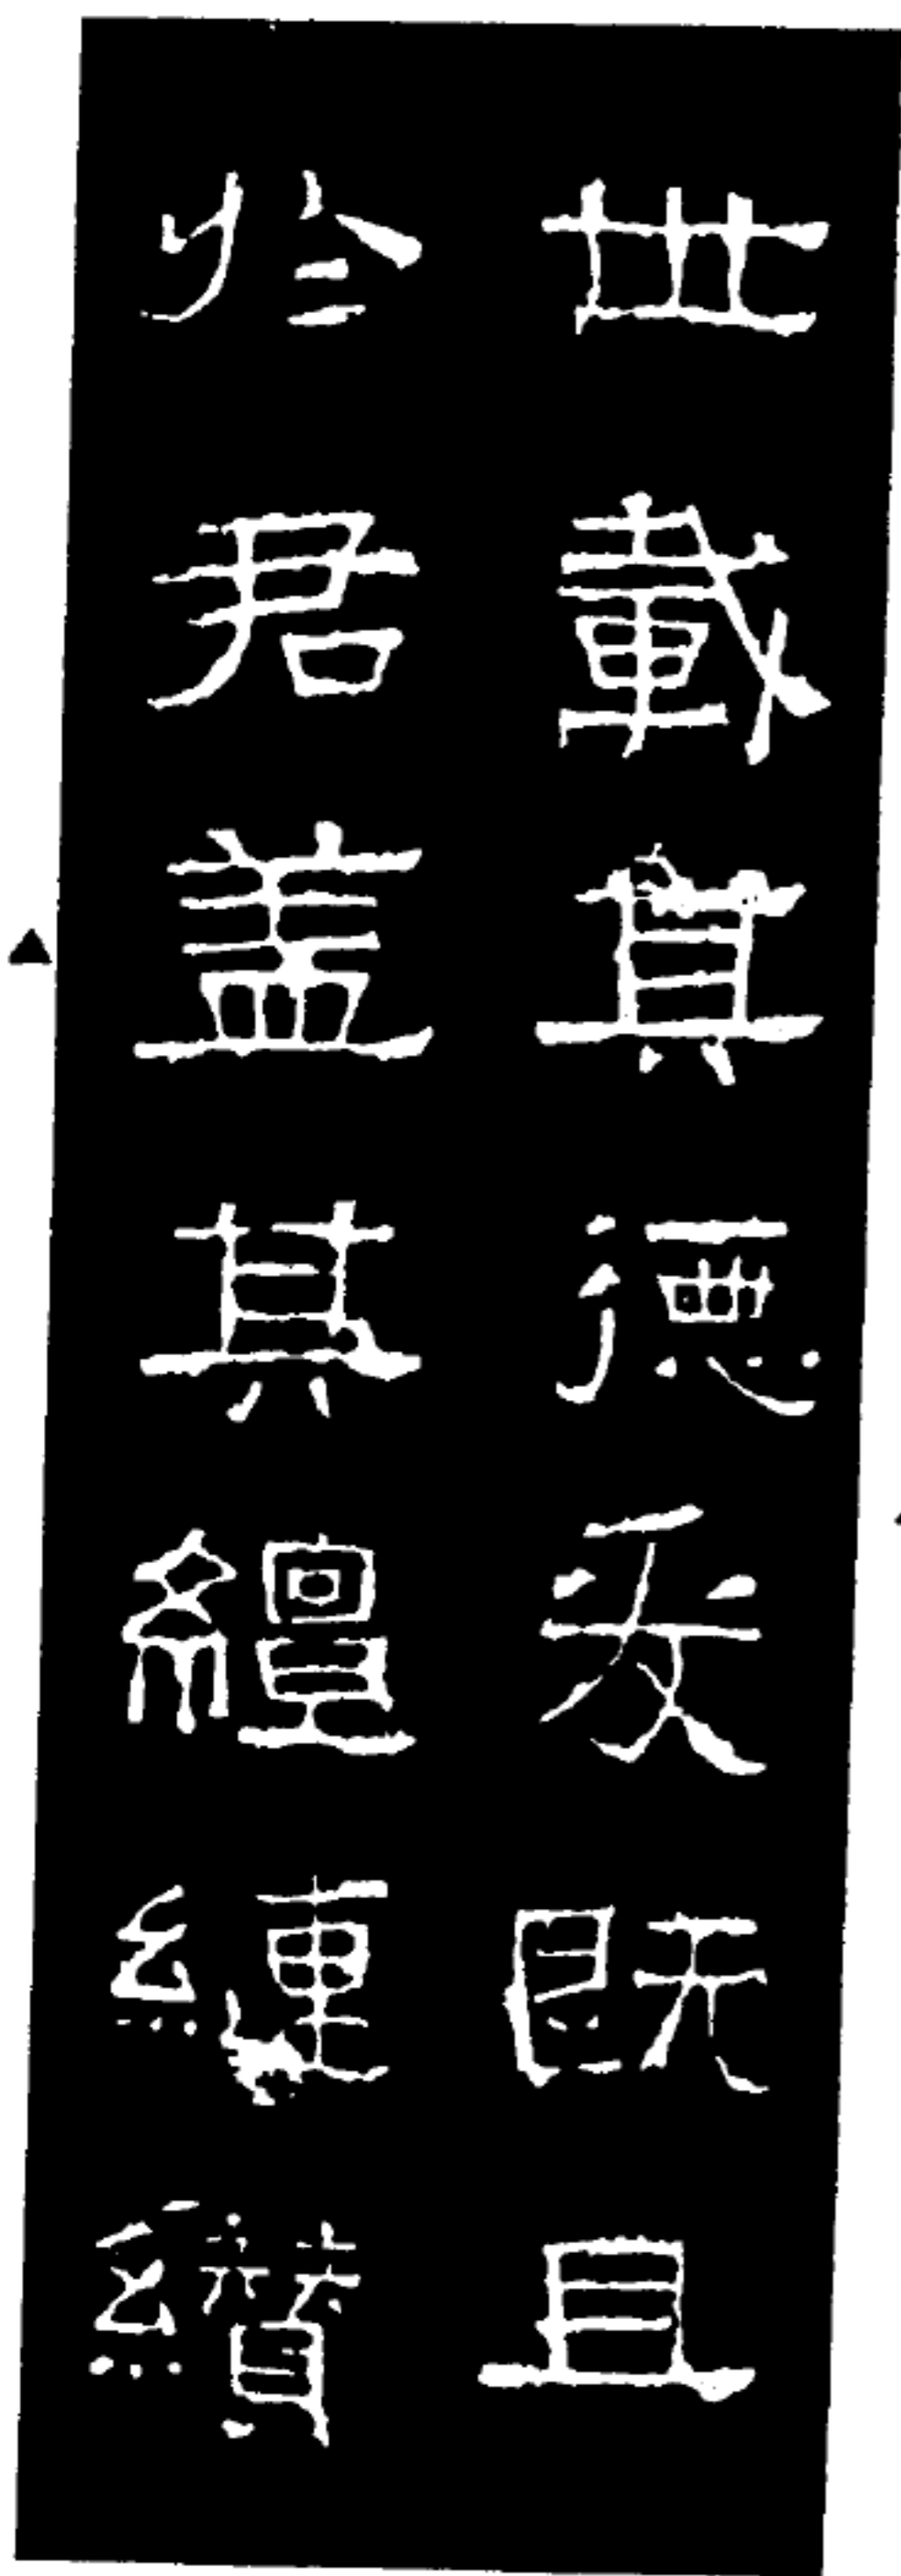 世載其德爰既且
於君盖其繵縺纘